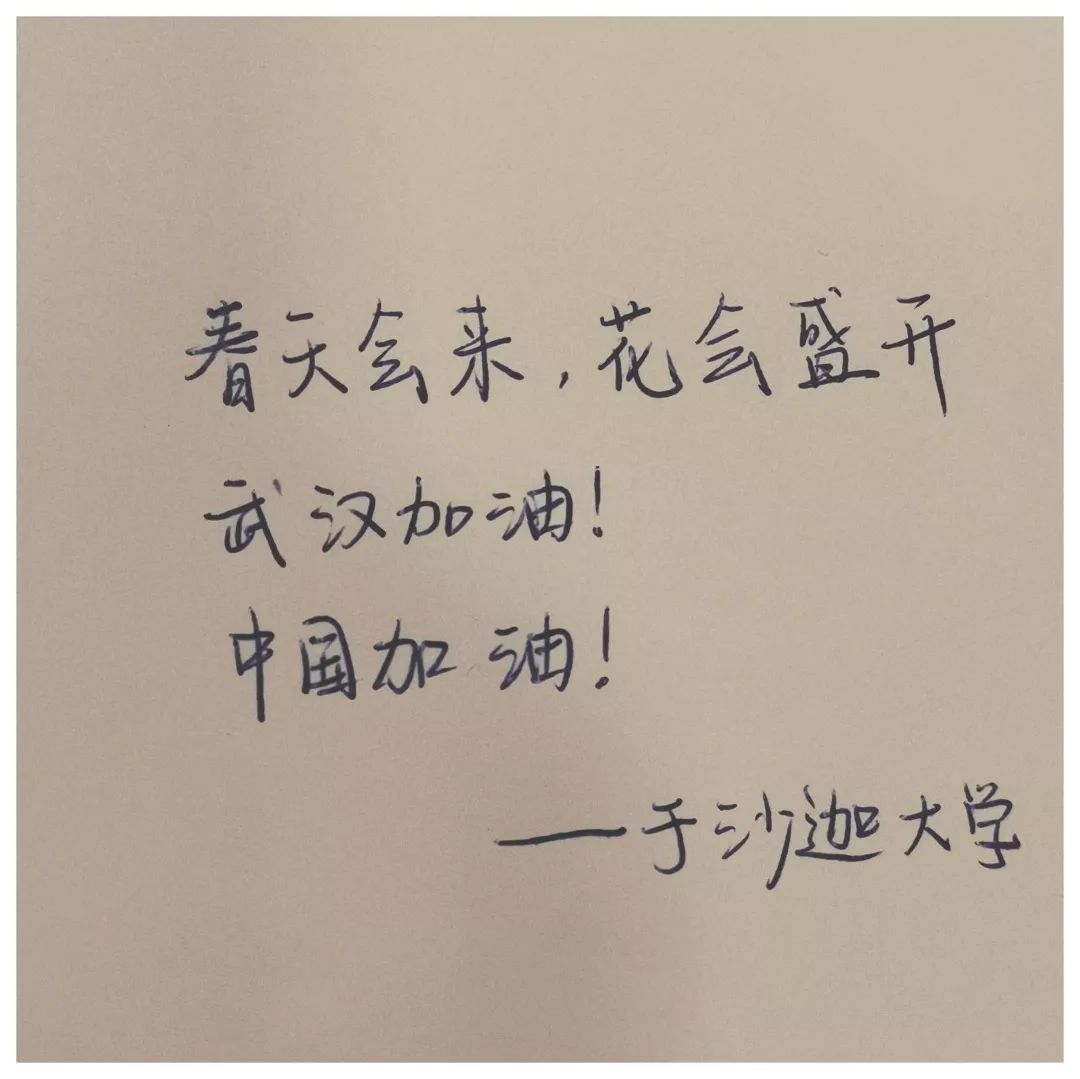 春天会来,花会盛开
武汉加油!
中国加油!
——于沙迦大学